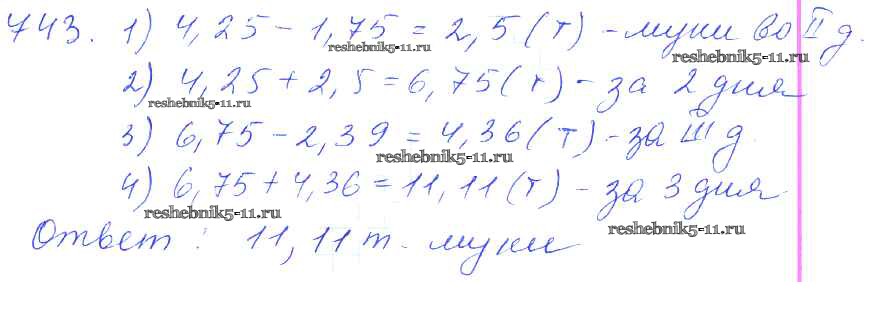 743. 1) 4,25 - 1,75 = 2,5 (т) - муки во II д.
reshebnik5-11.ru
reshebnik5-11.ru
2) 4,25 + 2,5 = 6,75 (т) - за 2 дня
reshebnik5-11.ru
3) 6,75 - 2,39 = 4,36 (т) - за III д.
reshebnik5-11.ru
4) 6,75 + 4,36 = 11,11 (т) - за 3 дня.
reshebnik5-11.ru
Ответ: 11,11 т. муки
reshebnik5-11.ru